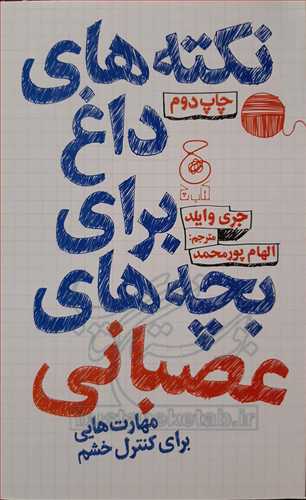 نکته‌های
چاپ دوم
داغ
کتاب چ
برای
جری وایلد
مترجم:
الهام پورمحمد
بچه‌های
عصبانی
مهارت‌هایی
برای کنترل خشم